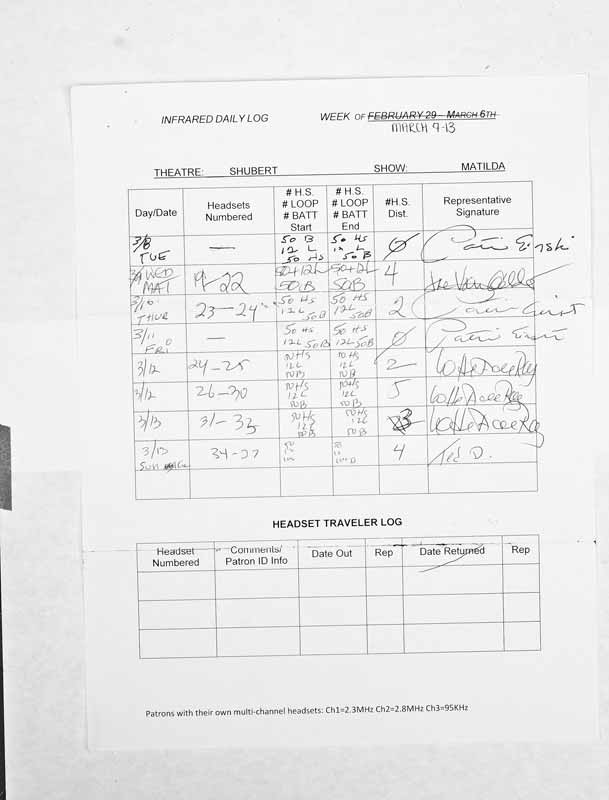 INFRARED DAILY LOG WEEK OF FEBRUARY 29 – MARCH 6TH
MARCH 7-13
THEATRE: SHUBERT SHOW: MATILDA
Day/Date Headsets Numbered # H.S. # LOOP # BATT Start # H.S. # LOOP # BATT End #H.S. Dist. Representative Signature
3/8 TUE — 50 B 12 L 50 HS 50 HS 12 L 50 B 0
3/9 WED MAT 19-22 50+12L 50B 50+12L 50B 4
3/10 THUR 23-24 50 HS 12L 50B 50 HS 12L 50B 2
3/11 FRI — 50 HS 12L 50B 50 HS 12L 50B 0
3/12 24-25 50HS 12L 50B 50HS 12L 50B 2
3/12 26-30 50HS 12L 50B 50HS 12L 50B 5
3/13 31-33 50HS 12L 50B 50HS 12L 50B 3
3/13 SUN 50 50 4 Ted D.
HEADSET TRAVELER LOG
Headset Numbered Comments/ Patron ID Info Date Out Rep Date Returned Rep
Patrons with their own multi-channel headsets: Ch1=2.3MHz Ch2=2.8MHz Ch3=95KHz